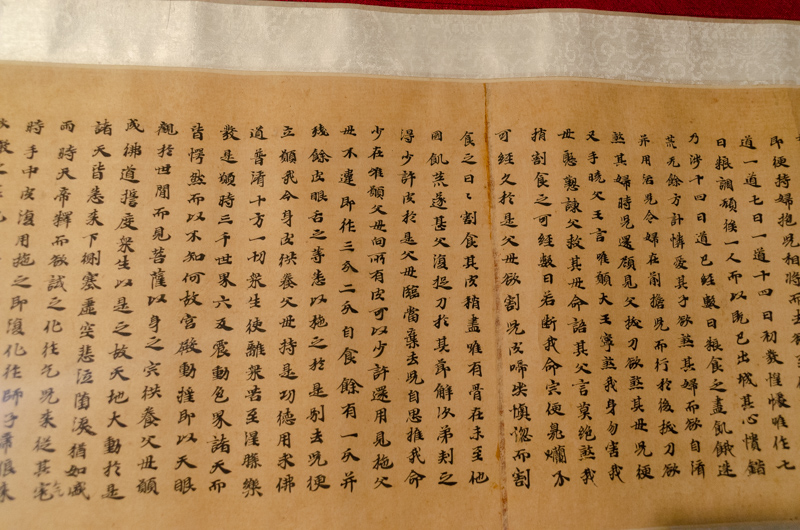 即便持婦抱兒相將而去
道一道七日一道十四日初發惶怖唯作七
日粮調頓俟一人而以既已出城其心憒錯
乃涉十四日道已經數日粮食之盡飢餓迷
荒无餘方計憐愛其子欲煞其婦而欲自濟
并用活兒令婦在前擔兒而行於後拔刀欲
煞其婦時兒還顧見父拔刀欲煞其母兒便
叉手曉父王言唯願大王寧煞我身勿害我
母懃懃諫父救其母命語其父言莫絕煞我
稍割食之可經數日若断我命宍便臭爛不
可經久於是父母欲割兒宍啼哭懊惱而割
食之日〻割食其宍稍盡唯有骨在未至他
國飢荒遂甚父復捉刀於其節解次弟剥之
得少許宍於是父母臨當棄去兒自思惟我命
少在唯願父母向所有宍可以少許還用見施父
母不違即作三分二分自食餘有一分并
殘餘宍眼舌之等悉以施之於是別去兒便
立願我今身宍供養父母持是功德用求佛
道普濟十方一切衆生使離衆苦至涅槃樂
發是願時三千世界六反震動色界諸天而
皆愕然而以不知何故宮殿動搖即以天眼
觀於世間而見菩薩以身之宍供養父母願
成佛道誓度衆生以是之故天地大動於是
諸天皆悉来下側塞虛空悲泣墮淚猶如盛
雨時天帝釋而欲試之化作乞兒来從其乞
時手中宍復用施之即復化作師子虎狼来